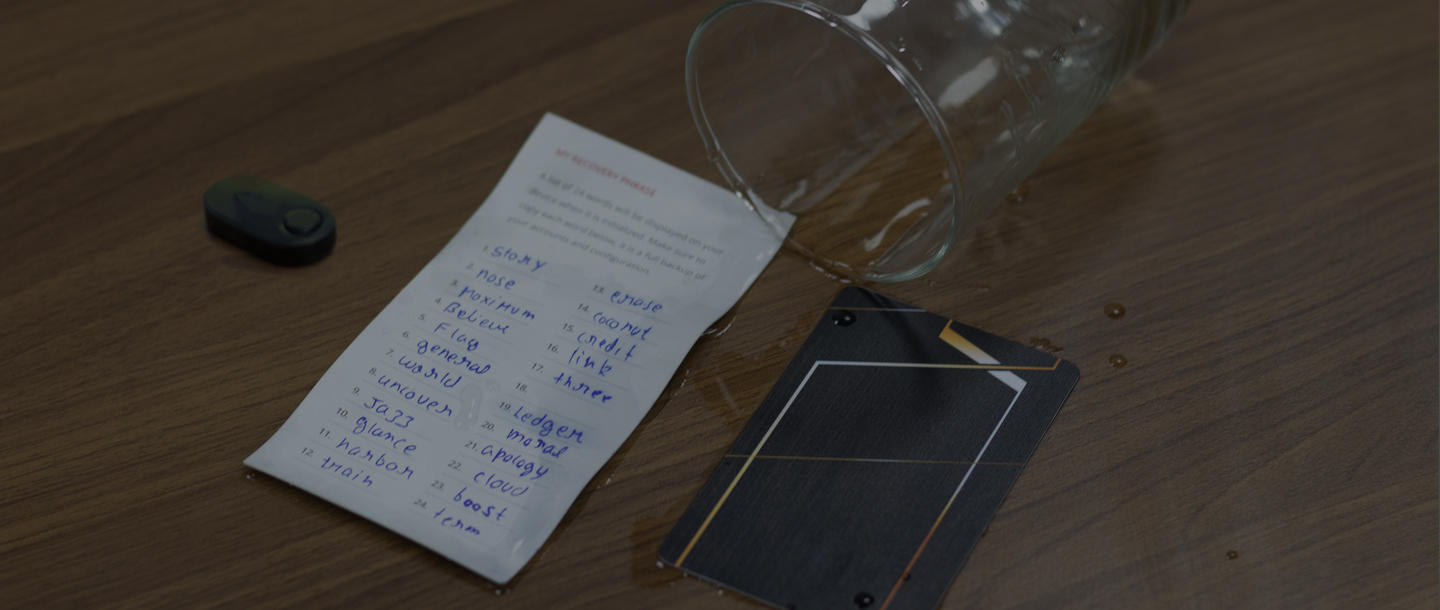 MY RECOVERY PHRASE
A list of 24 words will be displayed on your
device when it is initialized. Make sure to
copy each word below, it is a full backup of
your accounts and configuration.
1. Story
2. nose
3. Maximum
4. Believe
5. Flag
6. general
7. world
8. uncover
9. Jazz
10. glance
11. harbor
12. train
13. erase
14. coconut
15. credit
16. link
17. three
18.
19. Ledger
20. moral
21. apology
22. cloud
23. boost
24. term